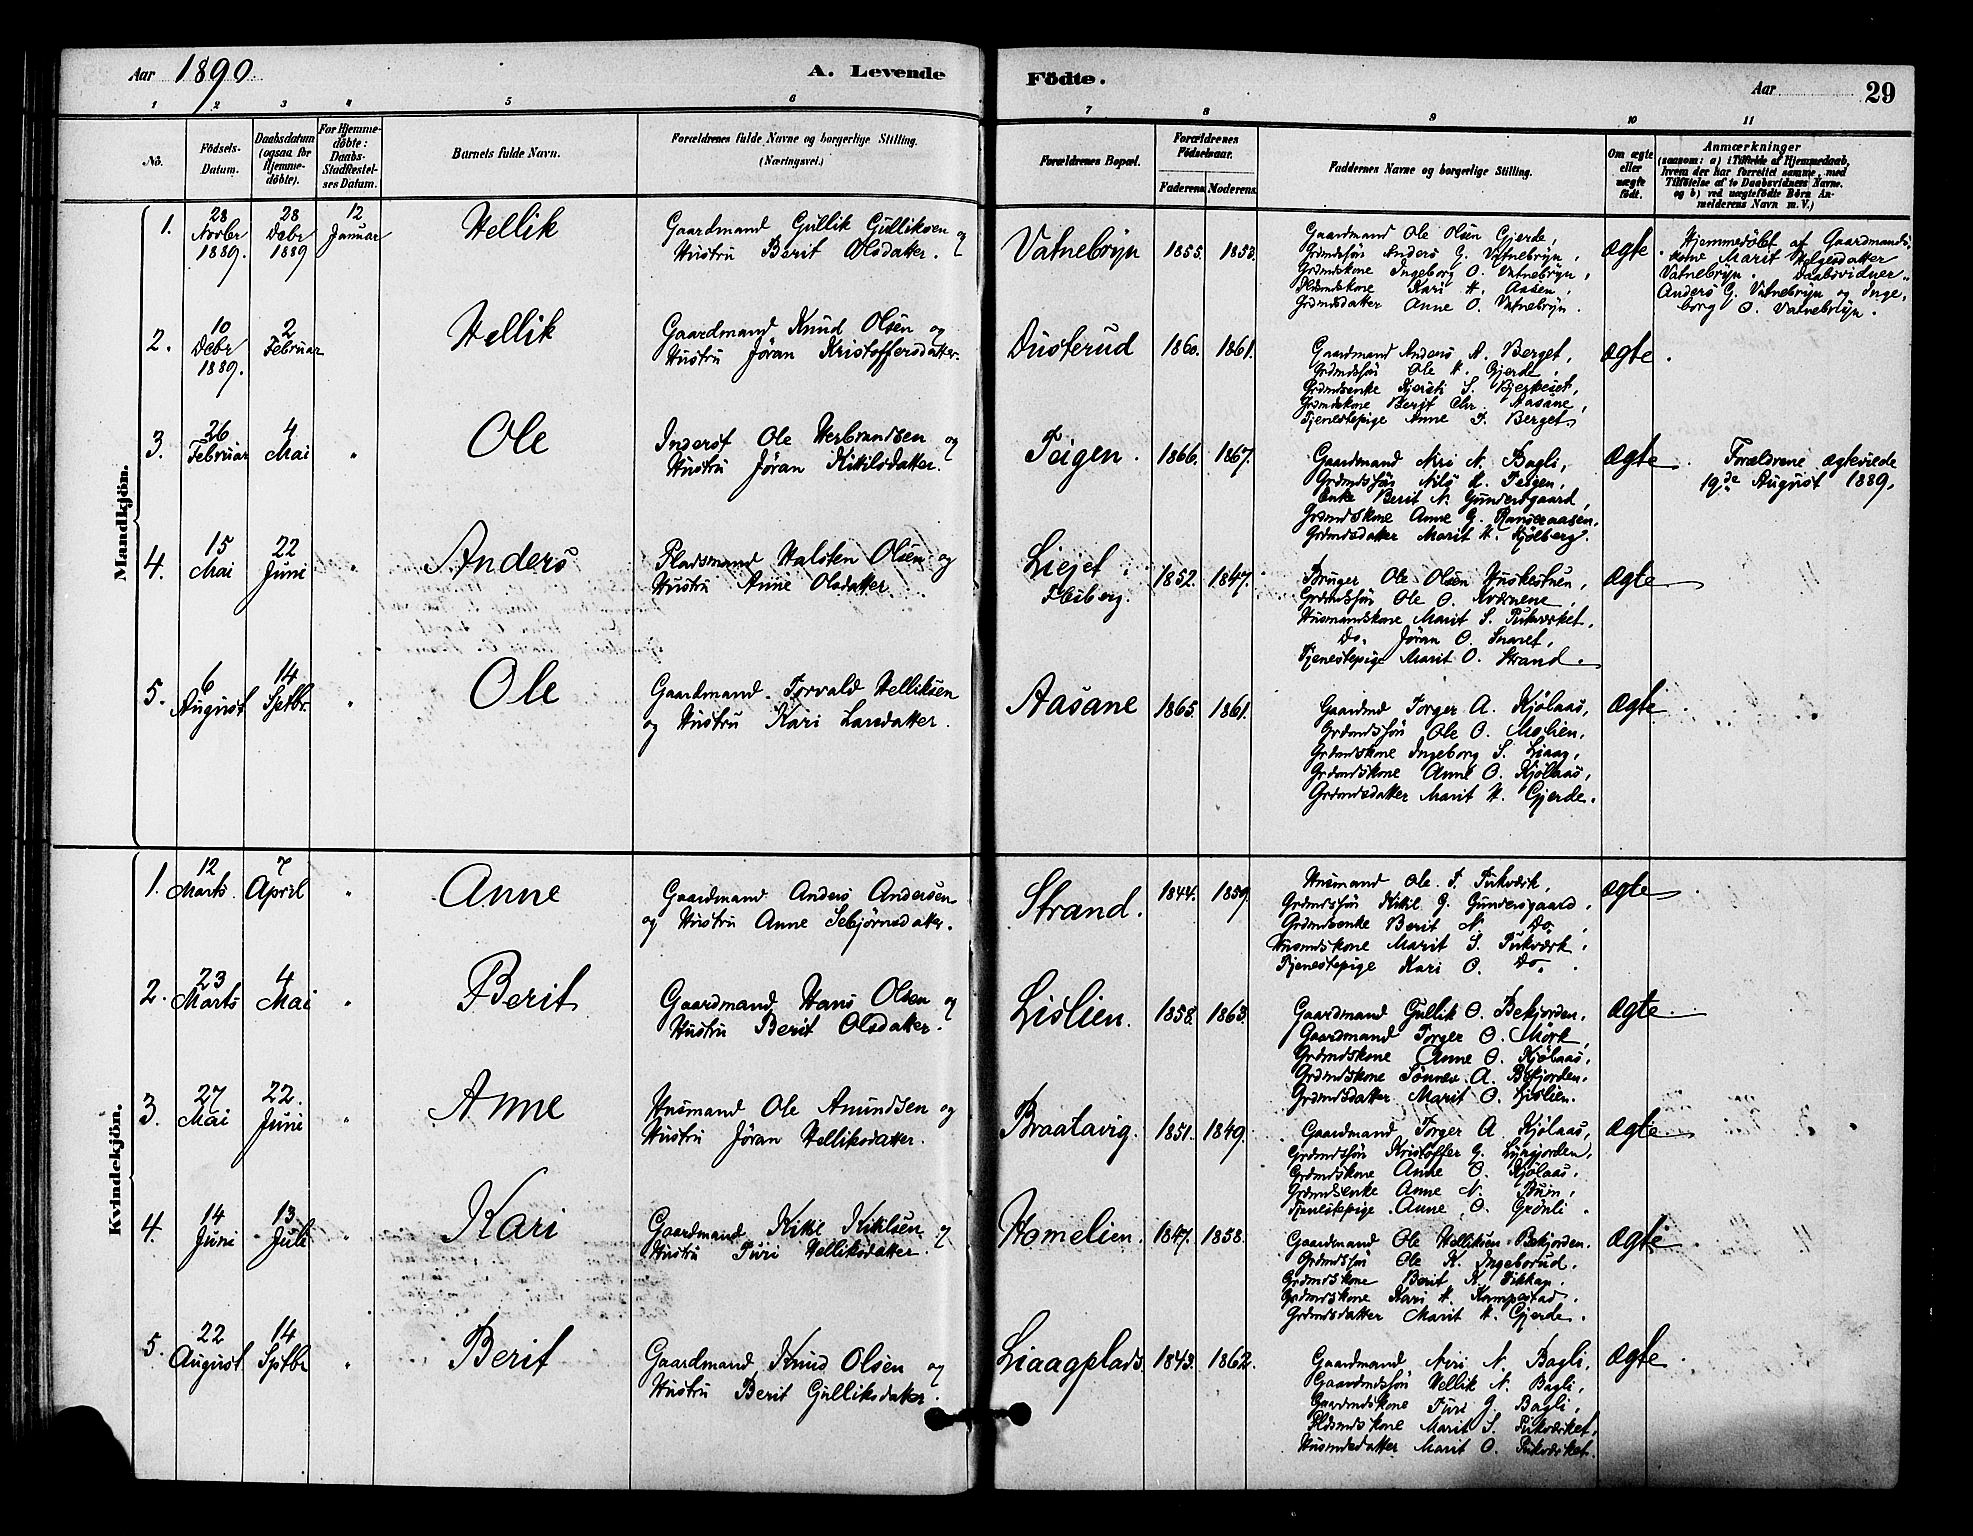 Aar 1890
A. Levende
Födte.
Aar
29
1 2 3 4 5 6
7 8 9 10 11
No.
Födsels-
Datum.
Daabsdatum
(ogsaa for
Hjemme-
döbte).
For Hjemme-
döbte:
Daabs-
Stadfæstel-
ses Datum.
Barnets fulde Navn.
Forældrenes fulde Navne og borgerlige Stilling.
(Næringsvei.)
Forældrenes Bopæl.
Forældrenes
Födselsaar.
Faderens. Moderens.
Faddernes Navne og borgerlige Stilling.
Om ægte
eller
uægte
födt.
Anmærkninger
(saasom: a) i Tilfælde af Hjemmedaab,
hvem der har forrettet samme, med
Tilföielse af to Daabsvidners Navne.
og b) ved uægtefödte Börn An-
melderens Navn m. V.)
Mandkjön.
1.
28
Novbr
1889.
28
Debr
1889
12
Januar
Hellik
Gaardmand Gullik Gulliksen og
Hustru Berit Olsdatter.
Vatnebryn
1855. 1853.
Gaardmand Ole Olsen Gjerde,
Grdmdssøn Anders G. Vatnebryn,
Grdmdskone Ingeborg O. Vatnebryn,
Pldsmdskone Kari H. Aasen,
Grdmdsdatter Anne O. Vatnebryn.
ægte.
Hjemmedøbt af Gaardmands-
kone Marit Helgesdatter
Vatnebryn. Daabsvidner:
Anders G. Vatnebryn og Inge-
borg O. Vatnebryn.
2.
10
Debr
1889.
2
Februar
Hellik
Gaardmand Knud Olsen og
Hustru Jøran Kristoffersdatter.
Dusterud
1860. 1861.
Gaardmand Anders A. Berget,
Grdmdssøn Ole H. Gjerde,
Grdmdsenke Kjersti S. Bjerkeset,
Grdmdskone Berit Chr. Aasane,
Tjenestepige Anne T. Berget
ægte.
3.
26
Februar
4
Mai
"
Ole
Inderst Ole Herbrandsen og
Hustru Jøran Kittilsdatter.
Teigen.
1866. 1867.
Gaardmand Niri N. Bagli,
Grdmdssøn Nils K. Teigen,
Enke Berit N. Gundersgaard,
Grdmdskone Anne G. Ranseaasen.
Grdmdsdatter Marit H. Kjølberg.
ægte.
Forældrene ægteviede
19de August 1889.
4.
15
Mai
22
Juni
"
Anders
Pladsmand Halsten Olsen og
Hustru Anne Olsdatter
Liejet
Flesberg.
1852. 1847.
Bruger Ole Olsen Huskestuen,
Grdmdssøn Ole O. Kværnene,
Husmandskone Marit S. Tukværket,
Do. Jøran O. Snaret,
Tjenestepige Marit O. Strand.
ægte
5.
6
August
14
Sptbr.
"
Ole
Gaardmand Torvald Helliksen
og Hustru Kari Larsdatter.
Aasane
1865. 1861.
Gaardmd Torger A. Kjølaas,
Grdmdssøn Ole O. Molien,
Grdmdskone Ingeborg S. Liaag,
Grdmdskone Anne O. Kjølaas,
Grdmdsdatter Marit H. Gjerde.
ægte.
Kvindekjön.
1.
12
Marts
7
April
"
Anne
Gaardmand Anders Andersen
og Hustru Anne Sebjørnsdatter.
Strand.
1844. 1859.
Husmand Ole T. Tukværk,
Grdmdssøn Kittil G. Gundersgaard.
Grdmdsenke Berit N. Do,
Husmdskone Marit S. Tukværk.
Tjenestepige Kari O. Do.
ægte
2.
23
Marts
4
Mai
"
Berit
Gaardmand Hans Olsen og
Hustru Berit Olsdatter.
Lislien.
1858. 1863.
Gaardmand Gullik O. Bekjorden.
Gaardmand Torger O. Mørk,
Grdmdskone Anne O. Kjølaas.
Grdmdskone Sønneve A. Bekjorden.
Grdmdsdatter Marit O. Lislien.
ægte.
3.
27
Mai
22.
Juni
"
Anne
Husmand Ole Amundsen og
Hustru Jøran Helliksdatter.
Braatavig.
1851. 1849.
Gaardmand Torger A. Kjølaas,
Grdmdssøn Kristoffer G. Lyngjorden,
Grdmdskone Anne O. Kjølaas.
Grdmdsenke Anne N. Buin,
Tjenestepige Anne O. Grønli.
ægte
4.
14
Juni
13
Juli
"
Kari
Gaardmand Kittil Kittilsen og
Hustru Turi Helliksdatter.
Homelien.
1847. 1858.
Gaardmand Ole Helliksen Bekjorden.
Grdmdssøn Ole K. Ingeborud.
Grdmdskone Berit K. Fikkan.
Grdmdskone Kari H. Kampestad.
Grdmdsdatter Marit H. Gjerde.
ægte
5.
22
August
14
Sptbr
"
Berit
Gaardmand Knud Olsen og
Hustru Berit Gulliksdatter.
Liaagplads.
1843. 1862.
Gaardmand Niri N. Bagli,
Gaardmdssøn Hellik N. Bagli,
Gaardmdskone Turi G. Bagli,
Pldsmdskone Marit S. Tukværket,
Husmdsdatter Marit O. Tukværket.
ægte.